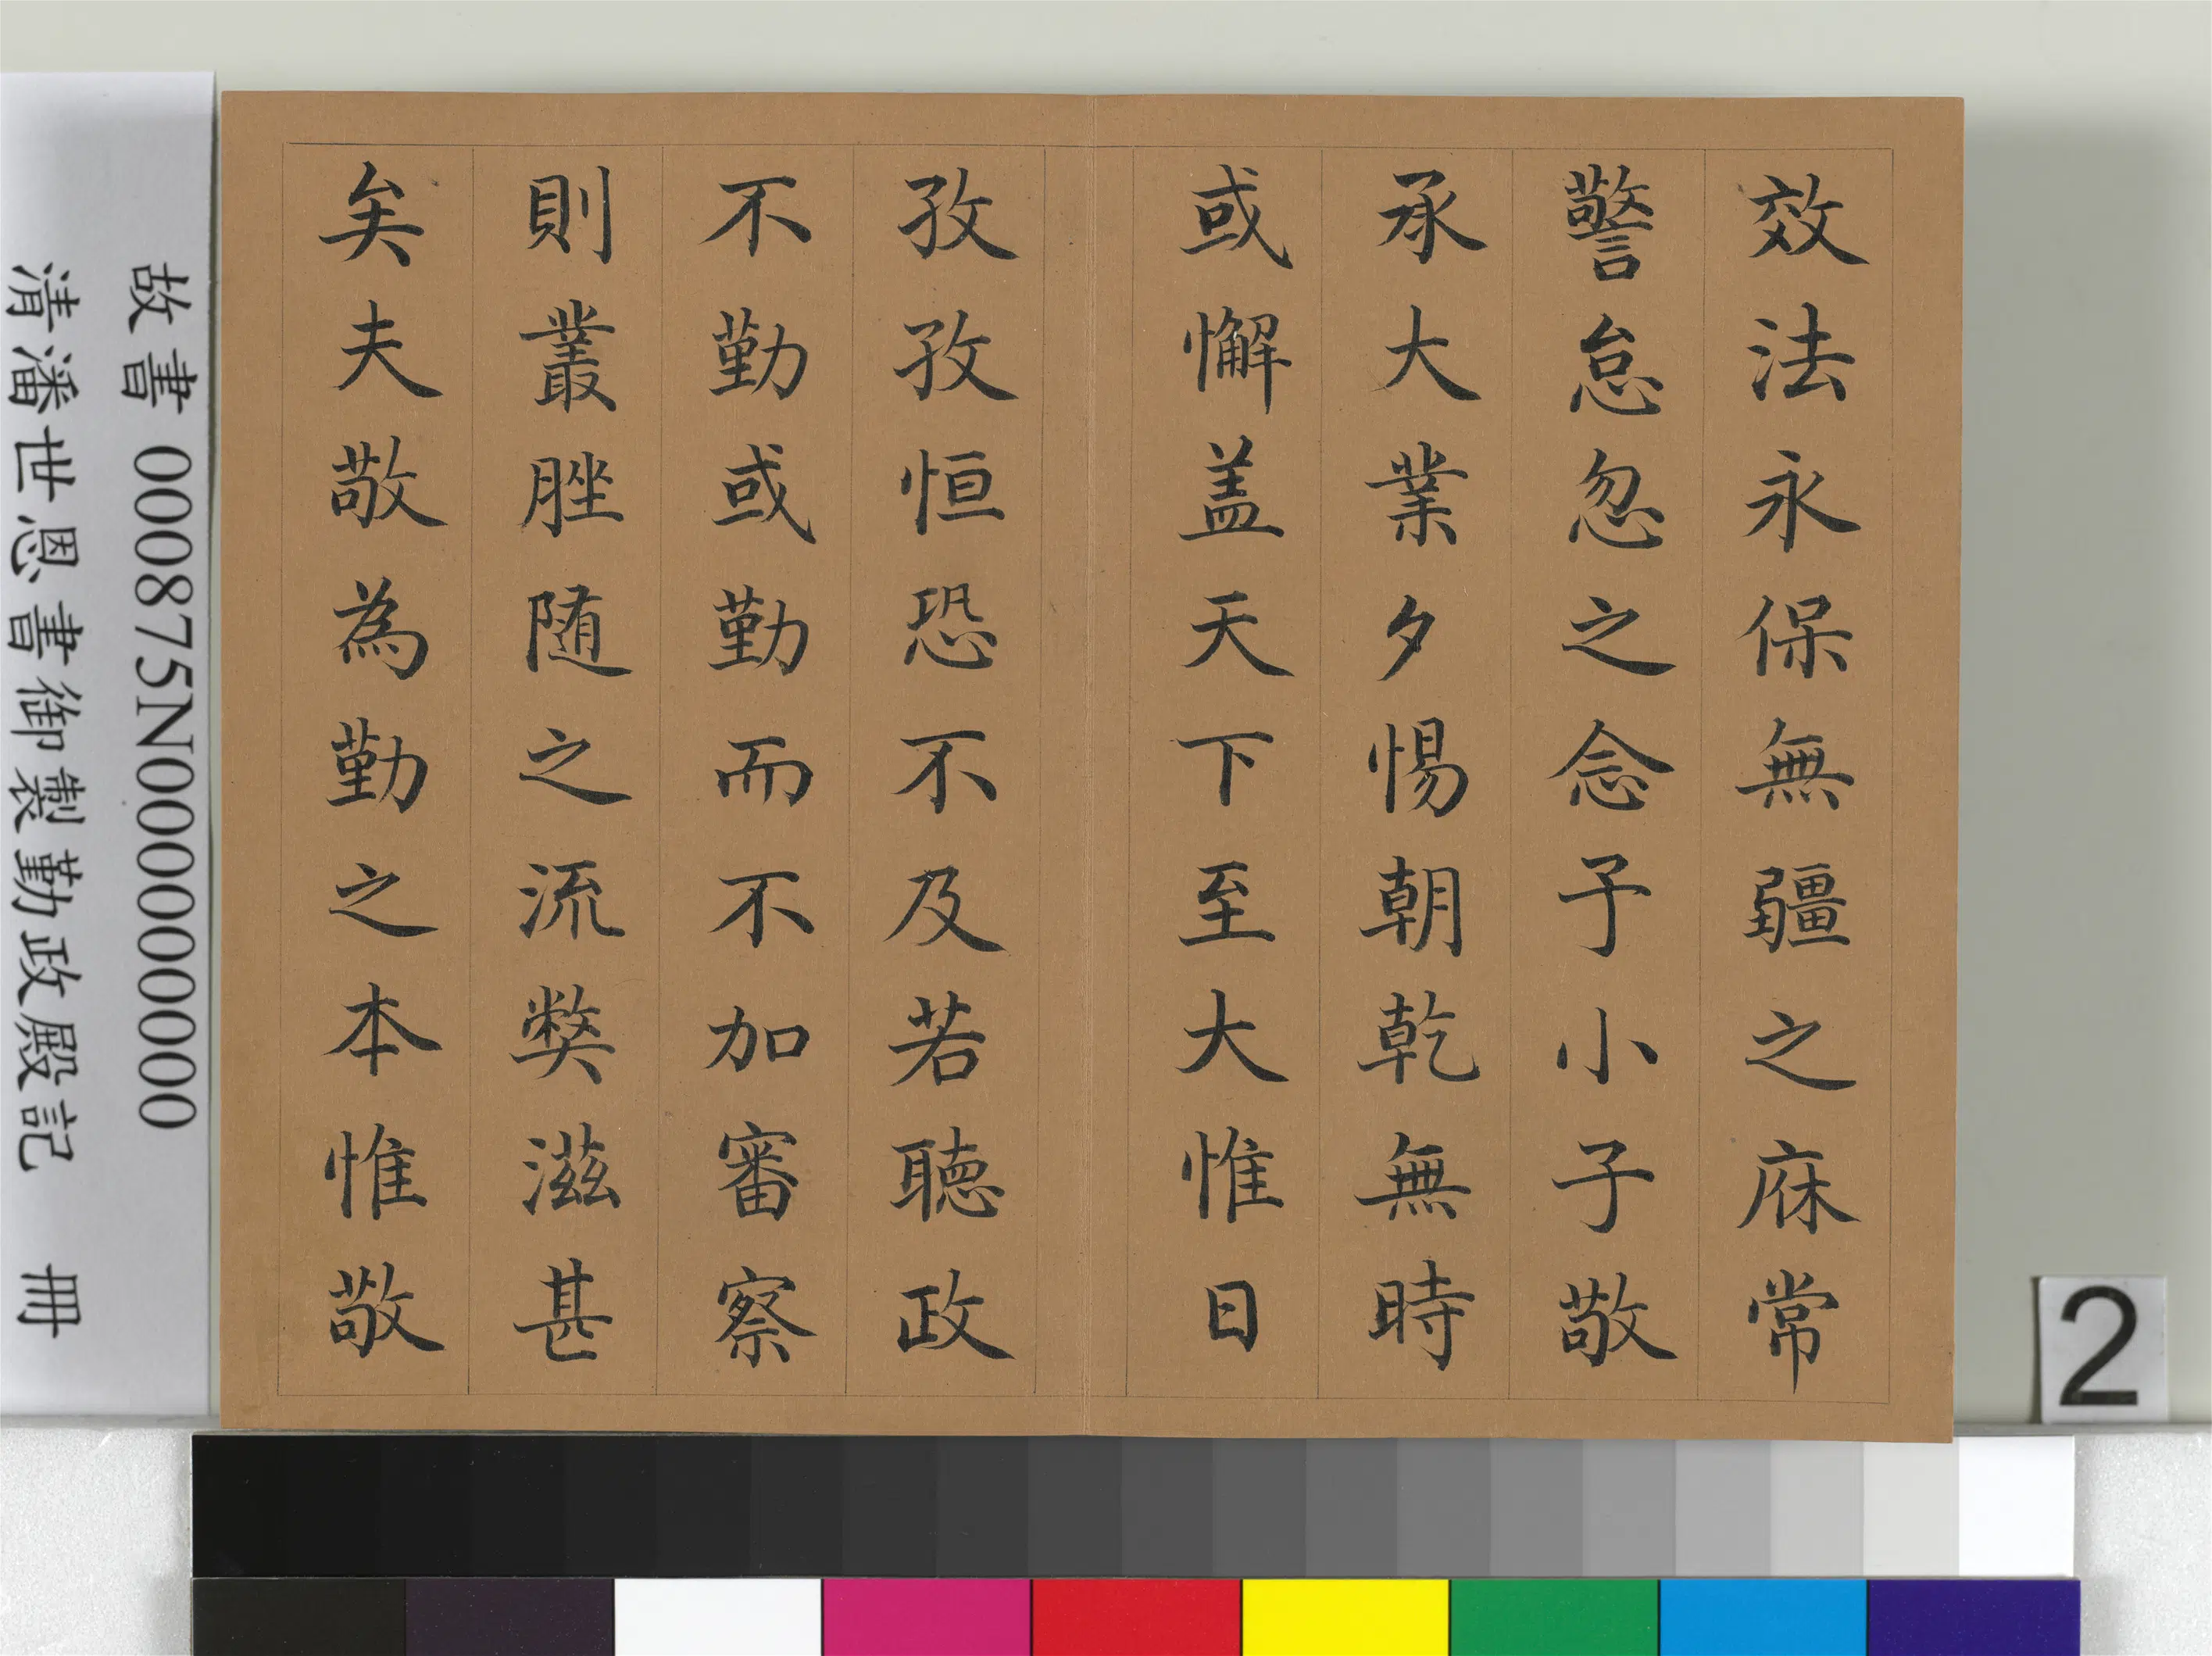 效法永保無疆之庥常
警怠忽之念予小子敬
承大業夕惕朝乾無時
或懈盖天下至大惟日
孜孜恒恐不及若聽政
不勤或勤而不加審察
則叢脞随之流弊滋甚
矣夫敬為勤之本惟敬
故書 000875N000000000
清潘世恩書御製勤政殿記 冊
2